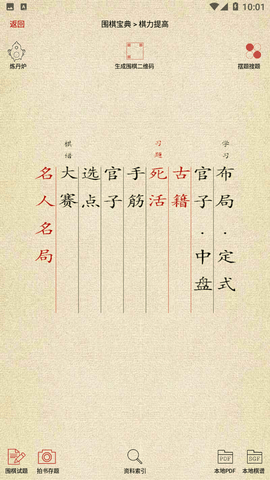 10:01
返回
围棋宝典 > 棋力提高
炼丹炉
生成围棋二维码
摆题搜题
学习
布局.定式
官子.中盘
古籍
习题
死活
手筋
官子
选点
棋谱
大赛
名人名局
围棋试题
拍书存题
资料索引
PDF
本地PDF
SGF
本地棋谱